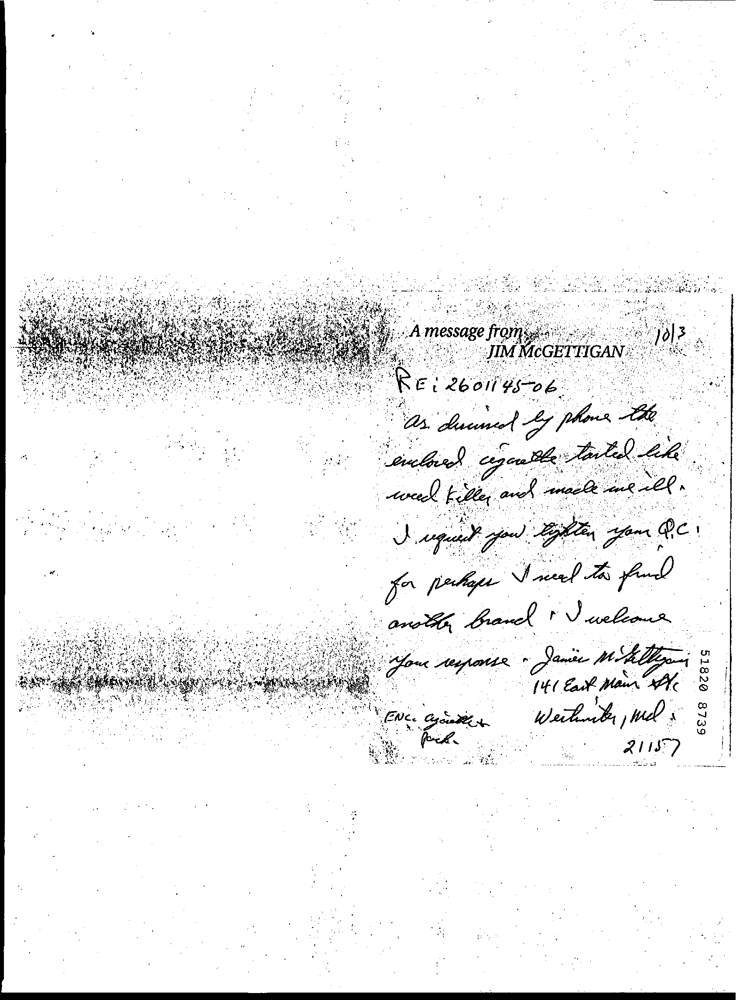 A message from
JIM McGETTIGAN
10/3
RE: 2601145-06
As discussed by phone the
enclosed cigarette tasted like
weed killer and made me ill.
I request you tighten your Q.C.
for perhaps I need to find
another brand. I welcome
your response. James McGettigan
141 East Main
Westminster, Md.
21157
ENC. cigarette &
pack.
51820 8739